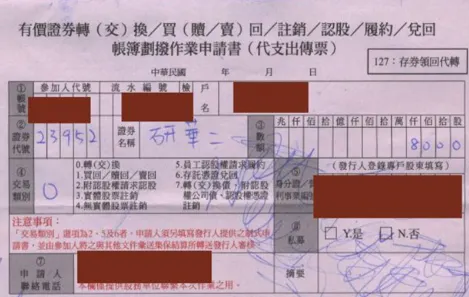 有價證券轉（交）換／買（贖／賣）回／註銷／認股／履約／兌回
帳簿劃撥作業申請書（代支出傳票）
中華民國 年 月 日
127：存券領回代轉
① 帳號 參加人代號 流水編號 檢 戶名
② 證券代號 23952 證券名稱 研華二 ③ 數額 兆仟佰拾億仟佰拾萬仟佰拾股
8000
④ 交易類別 0
0.轉(交)換
1.買回／贖回／賣回
2.附認股權請求認股
3.實體股票註銷
4.無實體股票註銷
5.員工認股權請求履約
6.存託憑證兌回
7.轉(交)換債、附認股權公司債、認股權憑證註銷
⑤ (發行人登錄專戶股東填寫)
身分證
利事業
注意事項：
「交易類別」選項為2、5及6者，申請人須另填寫發行人提供之制式申請書，並由參加人將之與其他文件彙送集保結算所轉送發行人審核
私募 □Y.是 □N.否
⑦ 申請人聯絡電話
本欄僅提供股務單位聯繫本次作業之用。
摘要